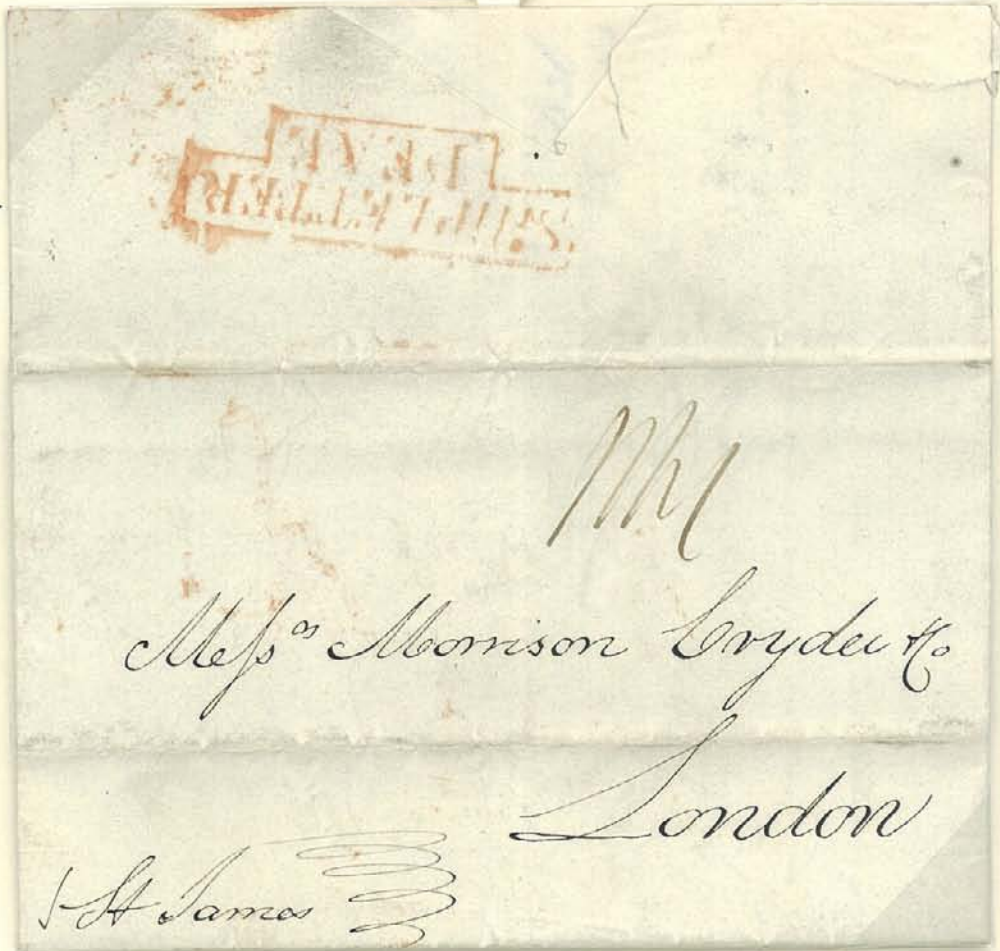 DEAL
SHIP LETTER
Mess.rs Morrison Cryder & Co
London
St James